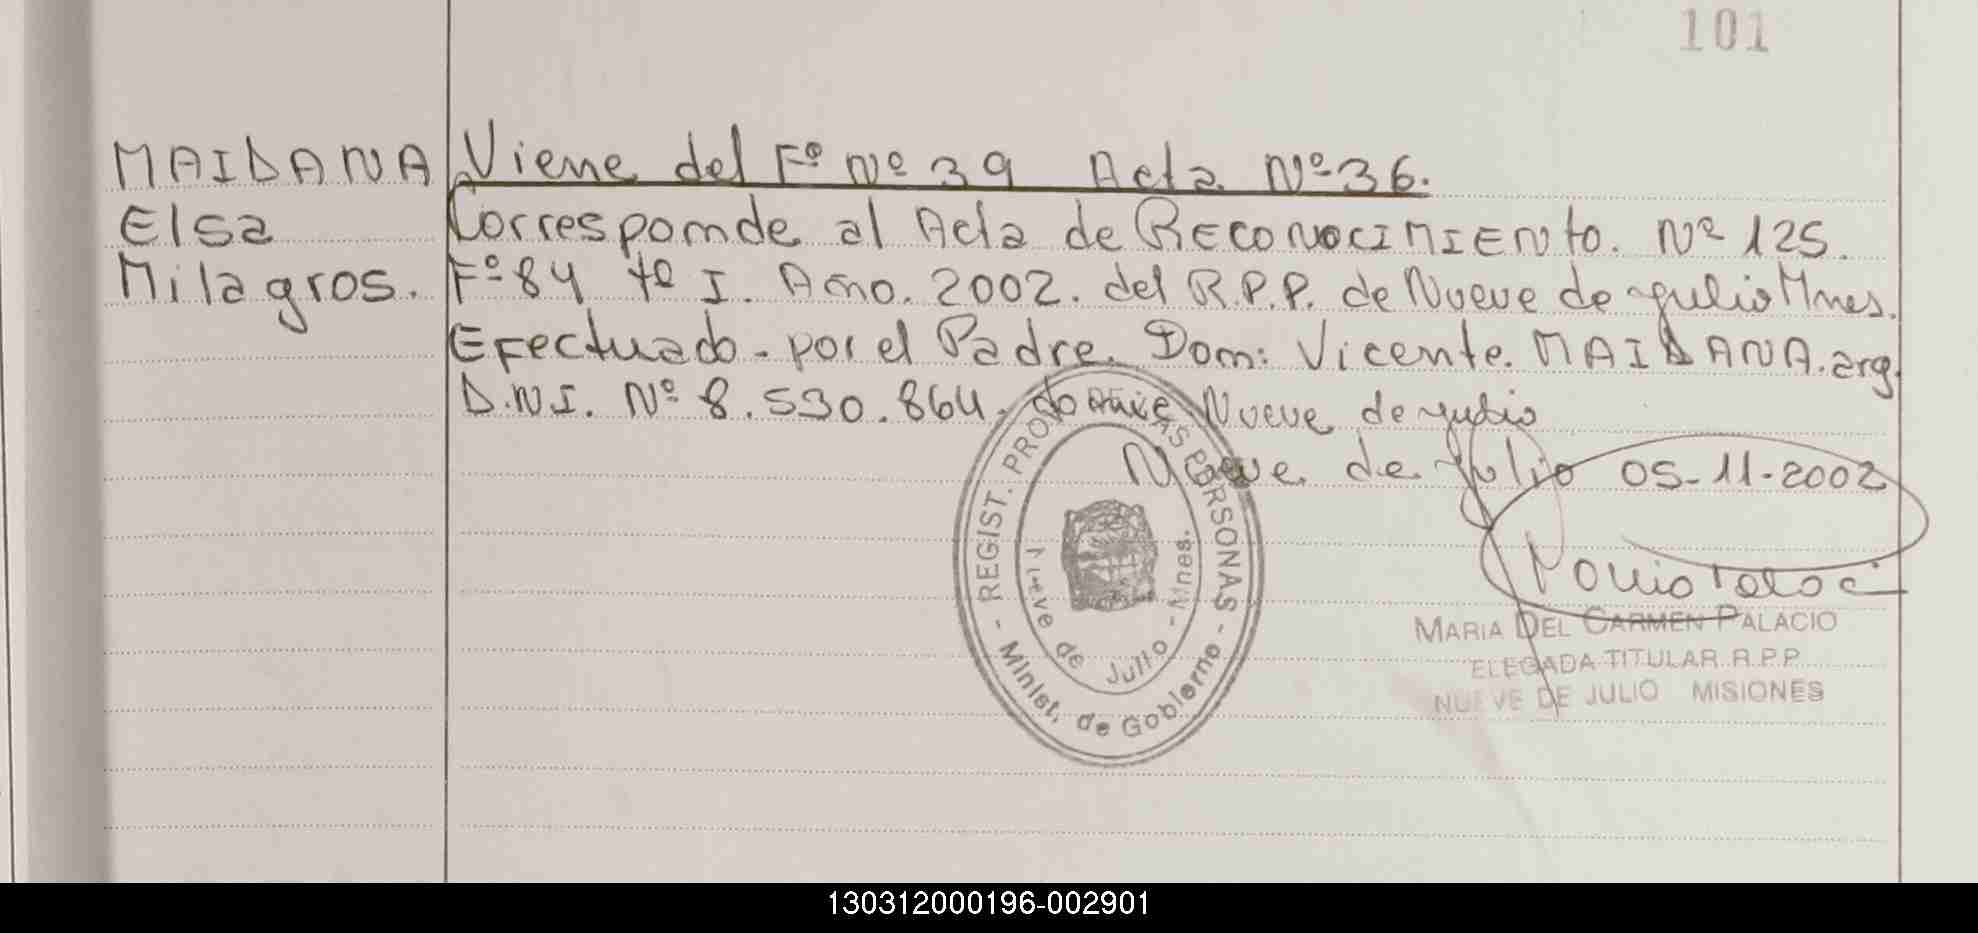 101
MAIDANA
Elsa
Milagros.
Viene del Fº Nº 39 Acta Nº 36.
Corresponde al Acta de RECONOCIMIENTO. Nº 125.
Fº 84 tº I. Año. 2002. del R.P.P. de Nueve de Julio Mnes.
Efectuado por el Padre. Don: Vicente. MAIDANA. arg.
D.N.I. Nº 8.530.864. domic Nueve de Julio
Nueve de Julio 05-11-2002
REGIST. PROV. DE LAS PERSONAS
- Minist. de Gobierno -
Nueve de Julio - Mnes.
MARIA DEL CARMEN PALACIO
ELEGADA TITULAR R.P.P.
NUEVE DE JULIO MISIONES
130312000196-002901